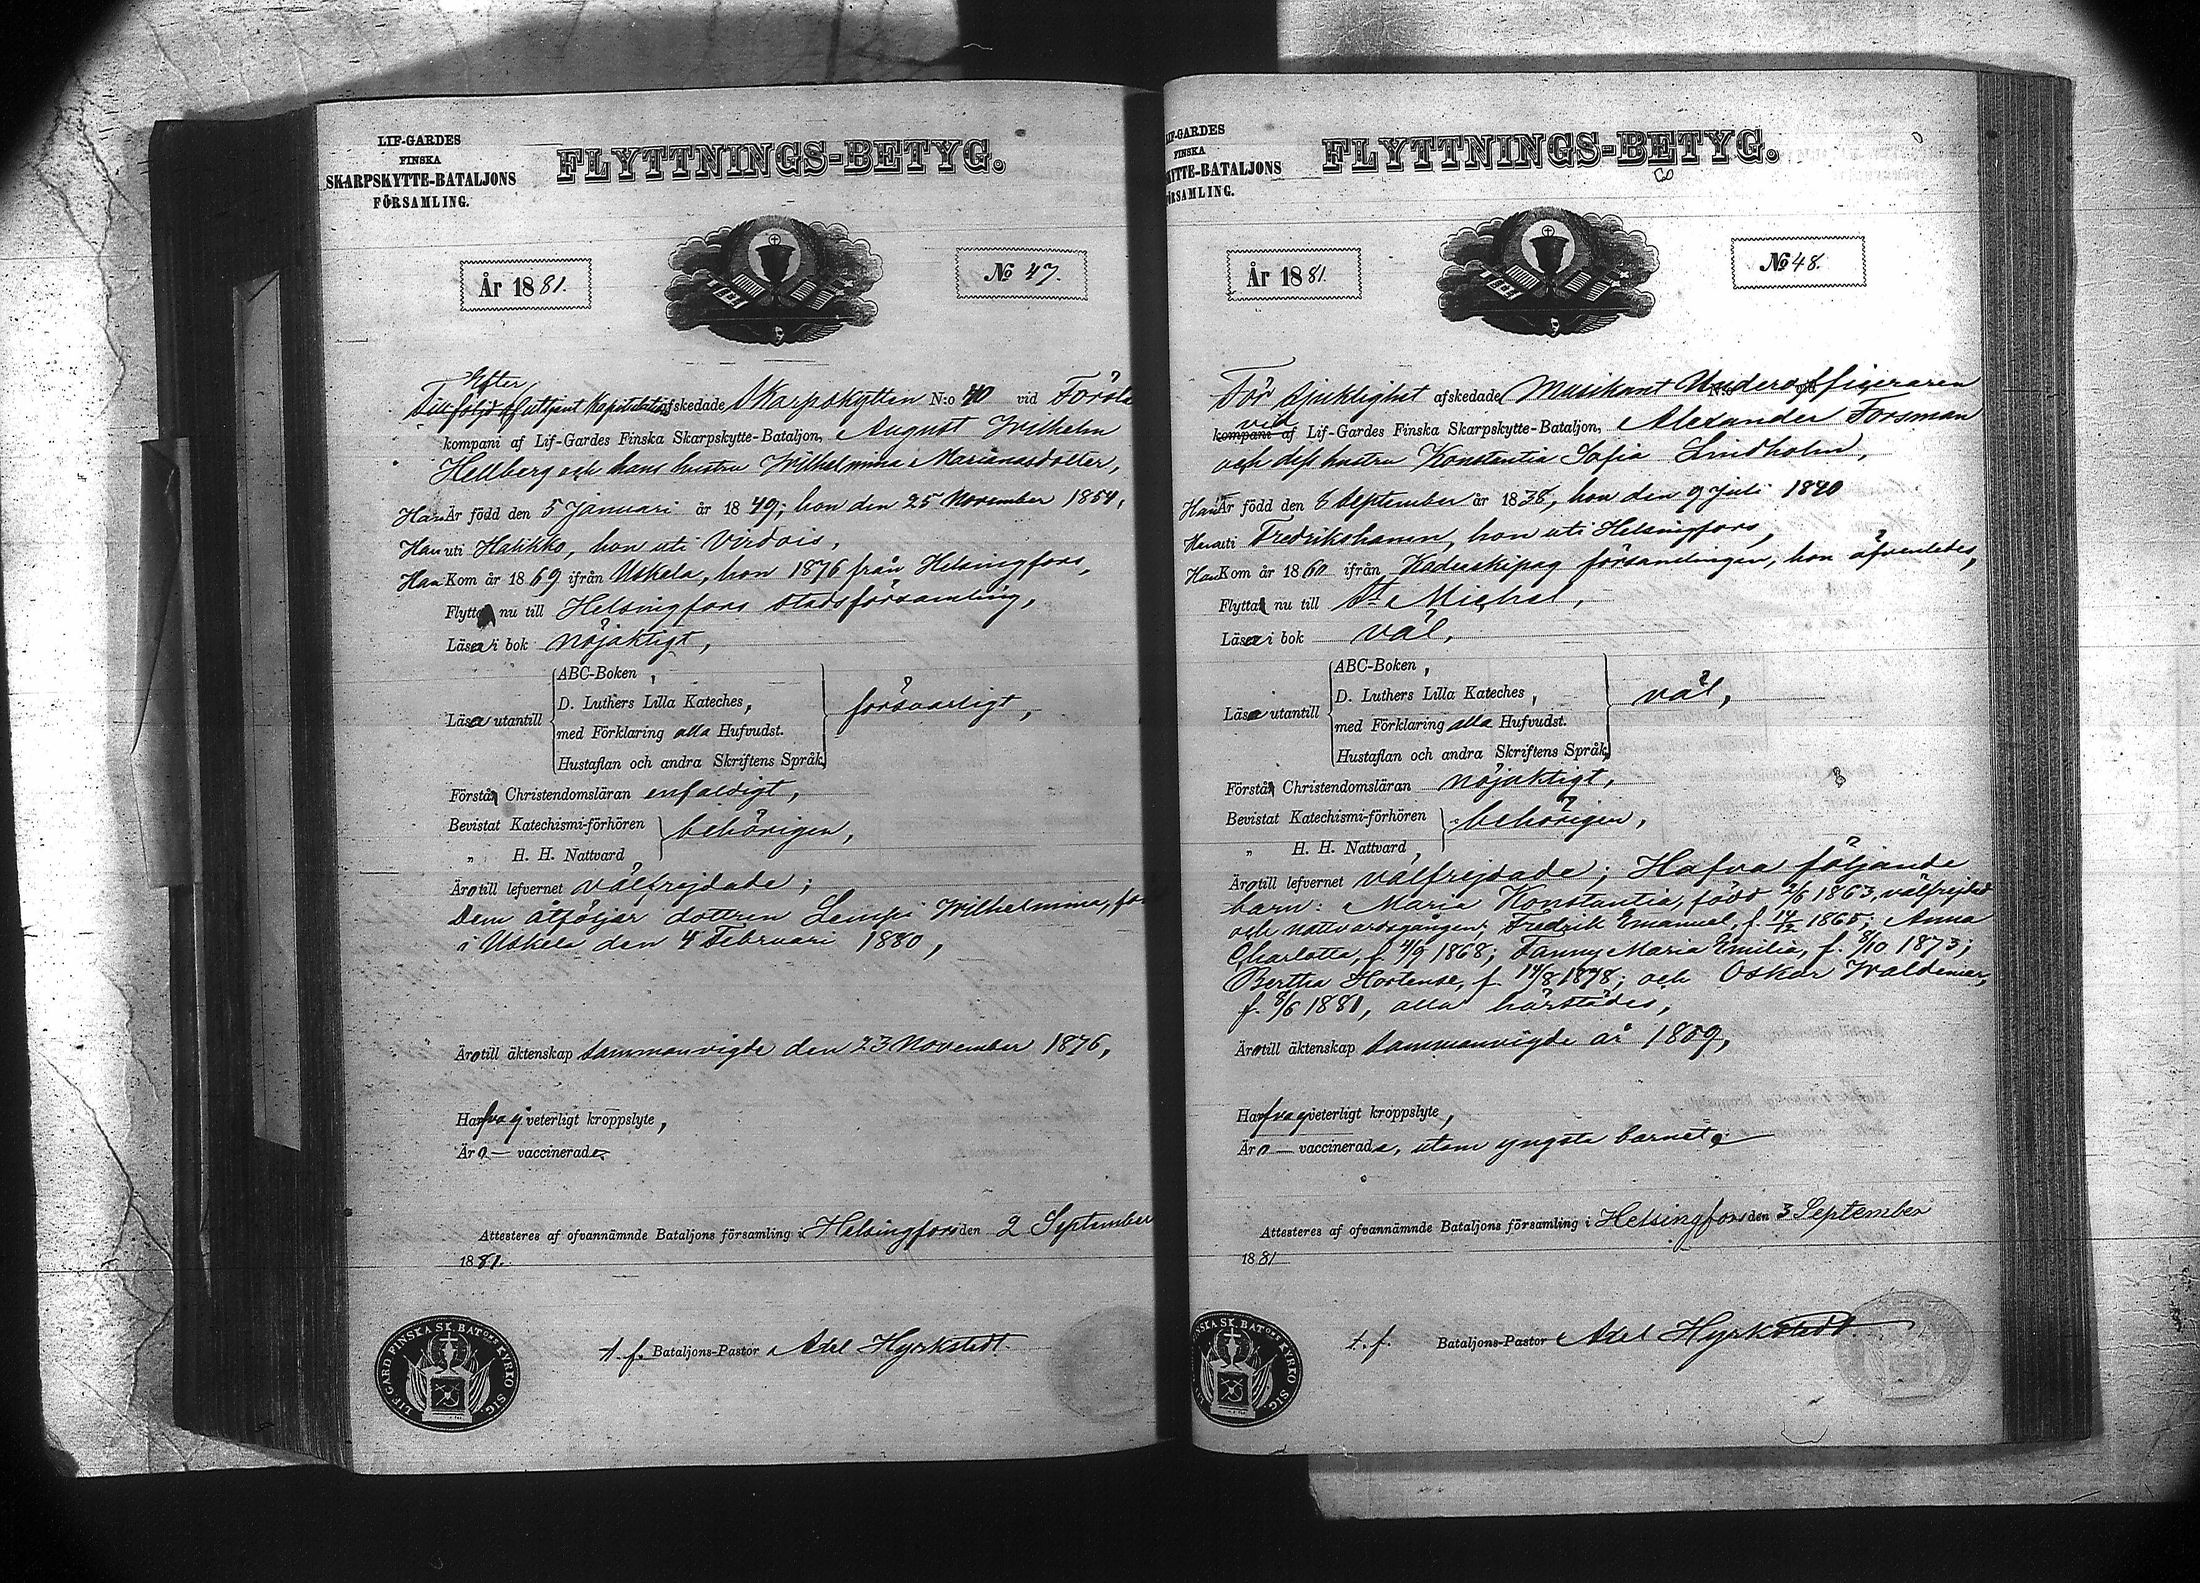 LIF-GARDES
FINSKA
SKARPSKYTTE-BATALJONS
FÖRSAMLING.
FLYTTNINGS-BETYG.
År 1881.
№ 47.
Efter
uttjent Kapitulation afskedade Skarpskytten N:o 40 vid Första
kompani af Lif-Gardes Finska Skarpskytte-Bataljon, August Wilhelm
Hellberg och hans hustru Wilhelmina Mariansdotter,
Han Är född den 5 Januari år 1849; hon den 25 November 1854,
Han uti Halikko, hon uti Virdois,
Han Kom år 1869 ifrån Uskela, hon 1876 från Helsingfors,
Flytta nu till Helsingfors stadsförsamling,
Läsa i bok nöjaktigt,
Läsa utantill
ABC-Boken,
D. Luthers Lilla Kateches,
med Förklaring alla Hufvudst.
Hustaflan och andra Skriftens Språk,
försvarligt,
Förstå Christendomsläran enfaldigt,
Bevistat Katechismi-förhören
„ H. H. Nattvard
behörigen,
Äro till lefvernet välfrejdade;
Dem åtföljer dottren Lempi Wilhelmina, fö
i Uskela den 4 Februari 1880,
Äro till äktenskap sammanvigde den 23 November 1876,
Hafva ej veterligt kroppslyte,
Äro — vaccinerade
Attesteres af ofvannämnde Bataljons församling i Helsingfors den 2 September
1881.
LIF.GARD FINSKA SK.BAT:ONS KYRKO SIG.
t. f. Bataljons-Pastor Axel Hyrkstedt.
LIF-GARDES
FINSKA
KYTTE-BATALJONS
ÖRSAMLING.
FLYTTNINGS-BETYG.
År 1881.
№ 48.
För sjuklighet afskedade Musikant Underofficeraren
vid
kompani af Lif-Gardes Finska Skarpskytte-Bataljon, Alexander Forsman
och dess hustru Konstantia Sofia Lindholm,
Han Är född den 8 September år 1838, hon den 9 Juli 1840
Han uti Fredrikshamn, hon uti Helsingfors,
Han Kom år 1860 ifrån församlingen, hon äfvenledes,
Flytta nu till S:t Michel,
Läsa i bok väl,
Läsa utantill
ABC-Boken,
D. Luthers Lilla Kateches,
med Förklaring alla Hufvudst.
Hustaflan och andra Skriftens Språk,
väl,
Förstå Christendomsläran nöjaktigt,
Bevistat Katechismi-förhören
„ H. H. Nattvard,
behörigen,
Äro till lefvernet välfrejdade; Hafva följande
barn: Maria Konstantia, född 2/6 1863, välfrejdad
och nattvardsgången; Fredrik Emanuel, f. 14/2 1865; Anna
Charlotta, f. 4/9 1868; Fanny Maria Emilia, f. 8/10 1873;
Bertha Hortense, f. 14/8 1878; och Oskar Waldemar,
f. 8/6 1881, alla härstädes,
Äro till äktenskap sammanvigde år 1859,
Hafva ej veterligt kroppslyte,
Äro — vaccinerade, utom yngsta barnet.
Attesteres af ofvannämnde Bataljons församling i Helsingfors den 3 September
1881
NSKA SK.BAT:ONS KYRKO SIG.
t. f. Bataljons-Pastor Axel Hyrkstedt.